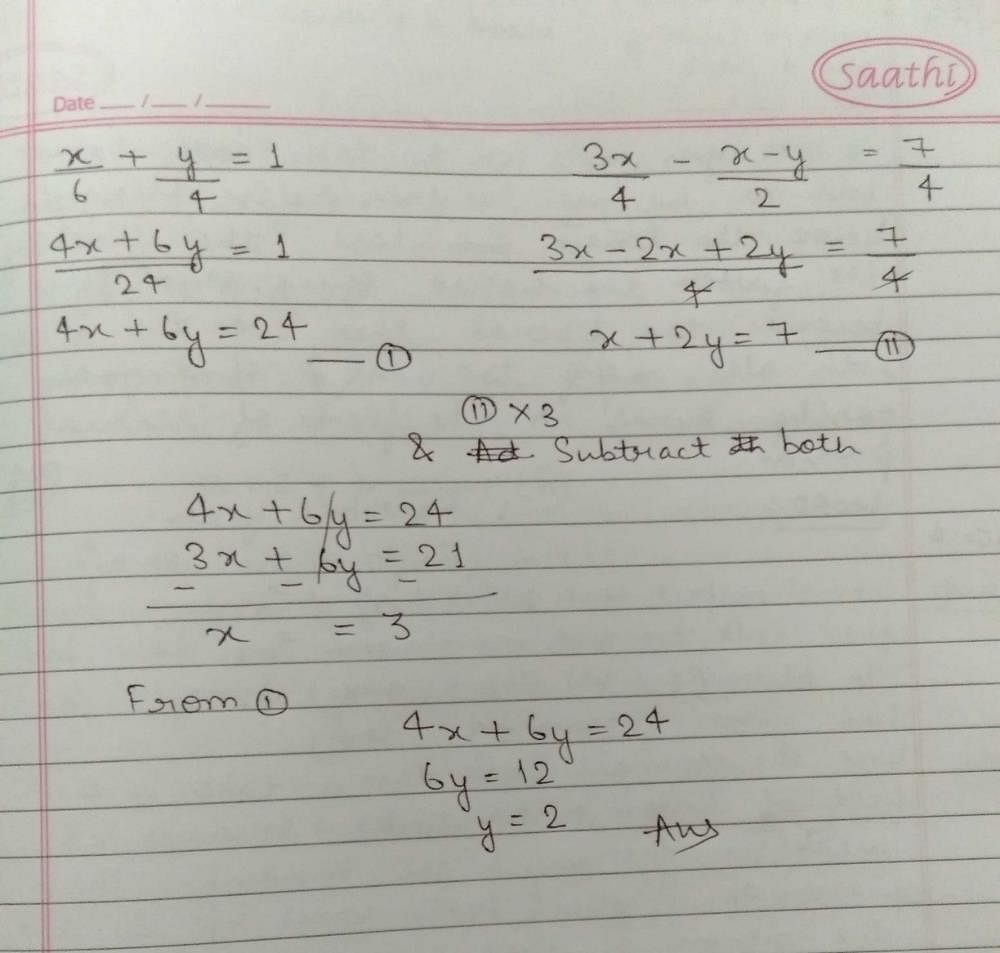 Saathi
Date __/__/____
x/6 + y/4 = 1
3x/4 - x-y/2 = 7/4
4x+6y/24 = 1
3x-2x+2y/4 = 7/4
4x+6y=24 —— ①
x+2y=7 —— ⑪
⑪ × 3
& Ad Subtract both
4x+6y=24
3x+6y=21
- - -
x = 3
From ①
4x+6y=24
6y=12
y=2 Ans